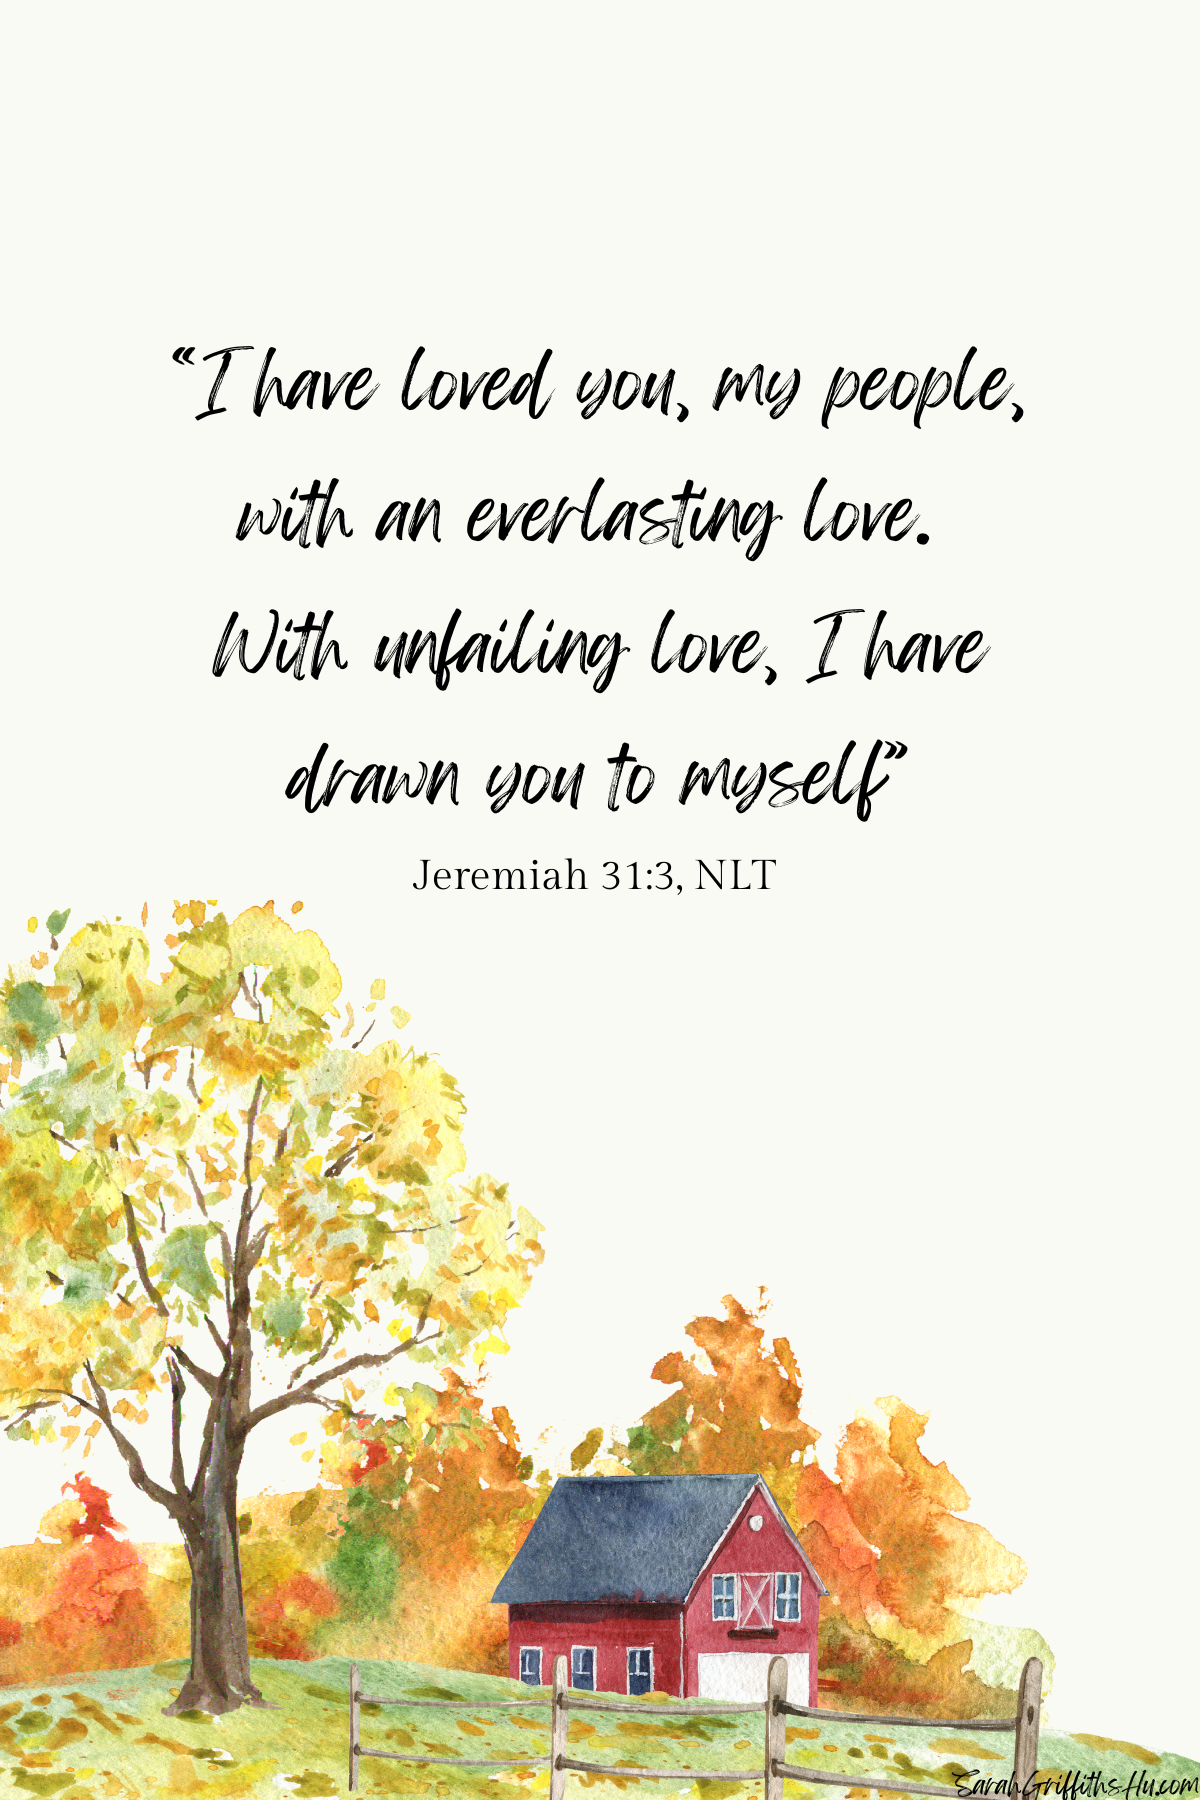 “I have loved you, my people,
with an everlasting love.
With unfailing love, I have
drawn you to myself”
Jeremiah 31:3, NLT
SarahGriffithsHu.com